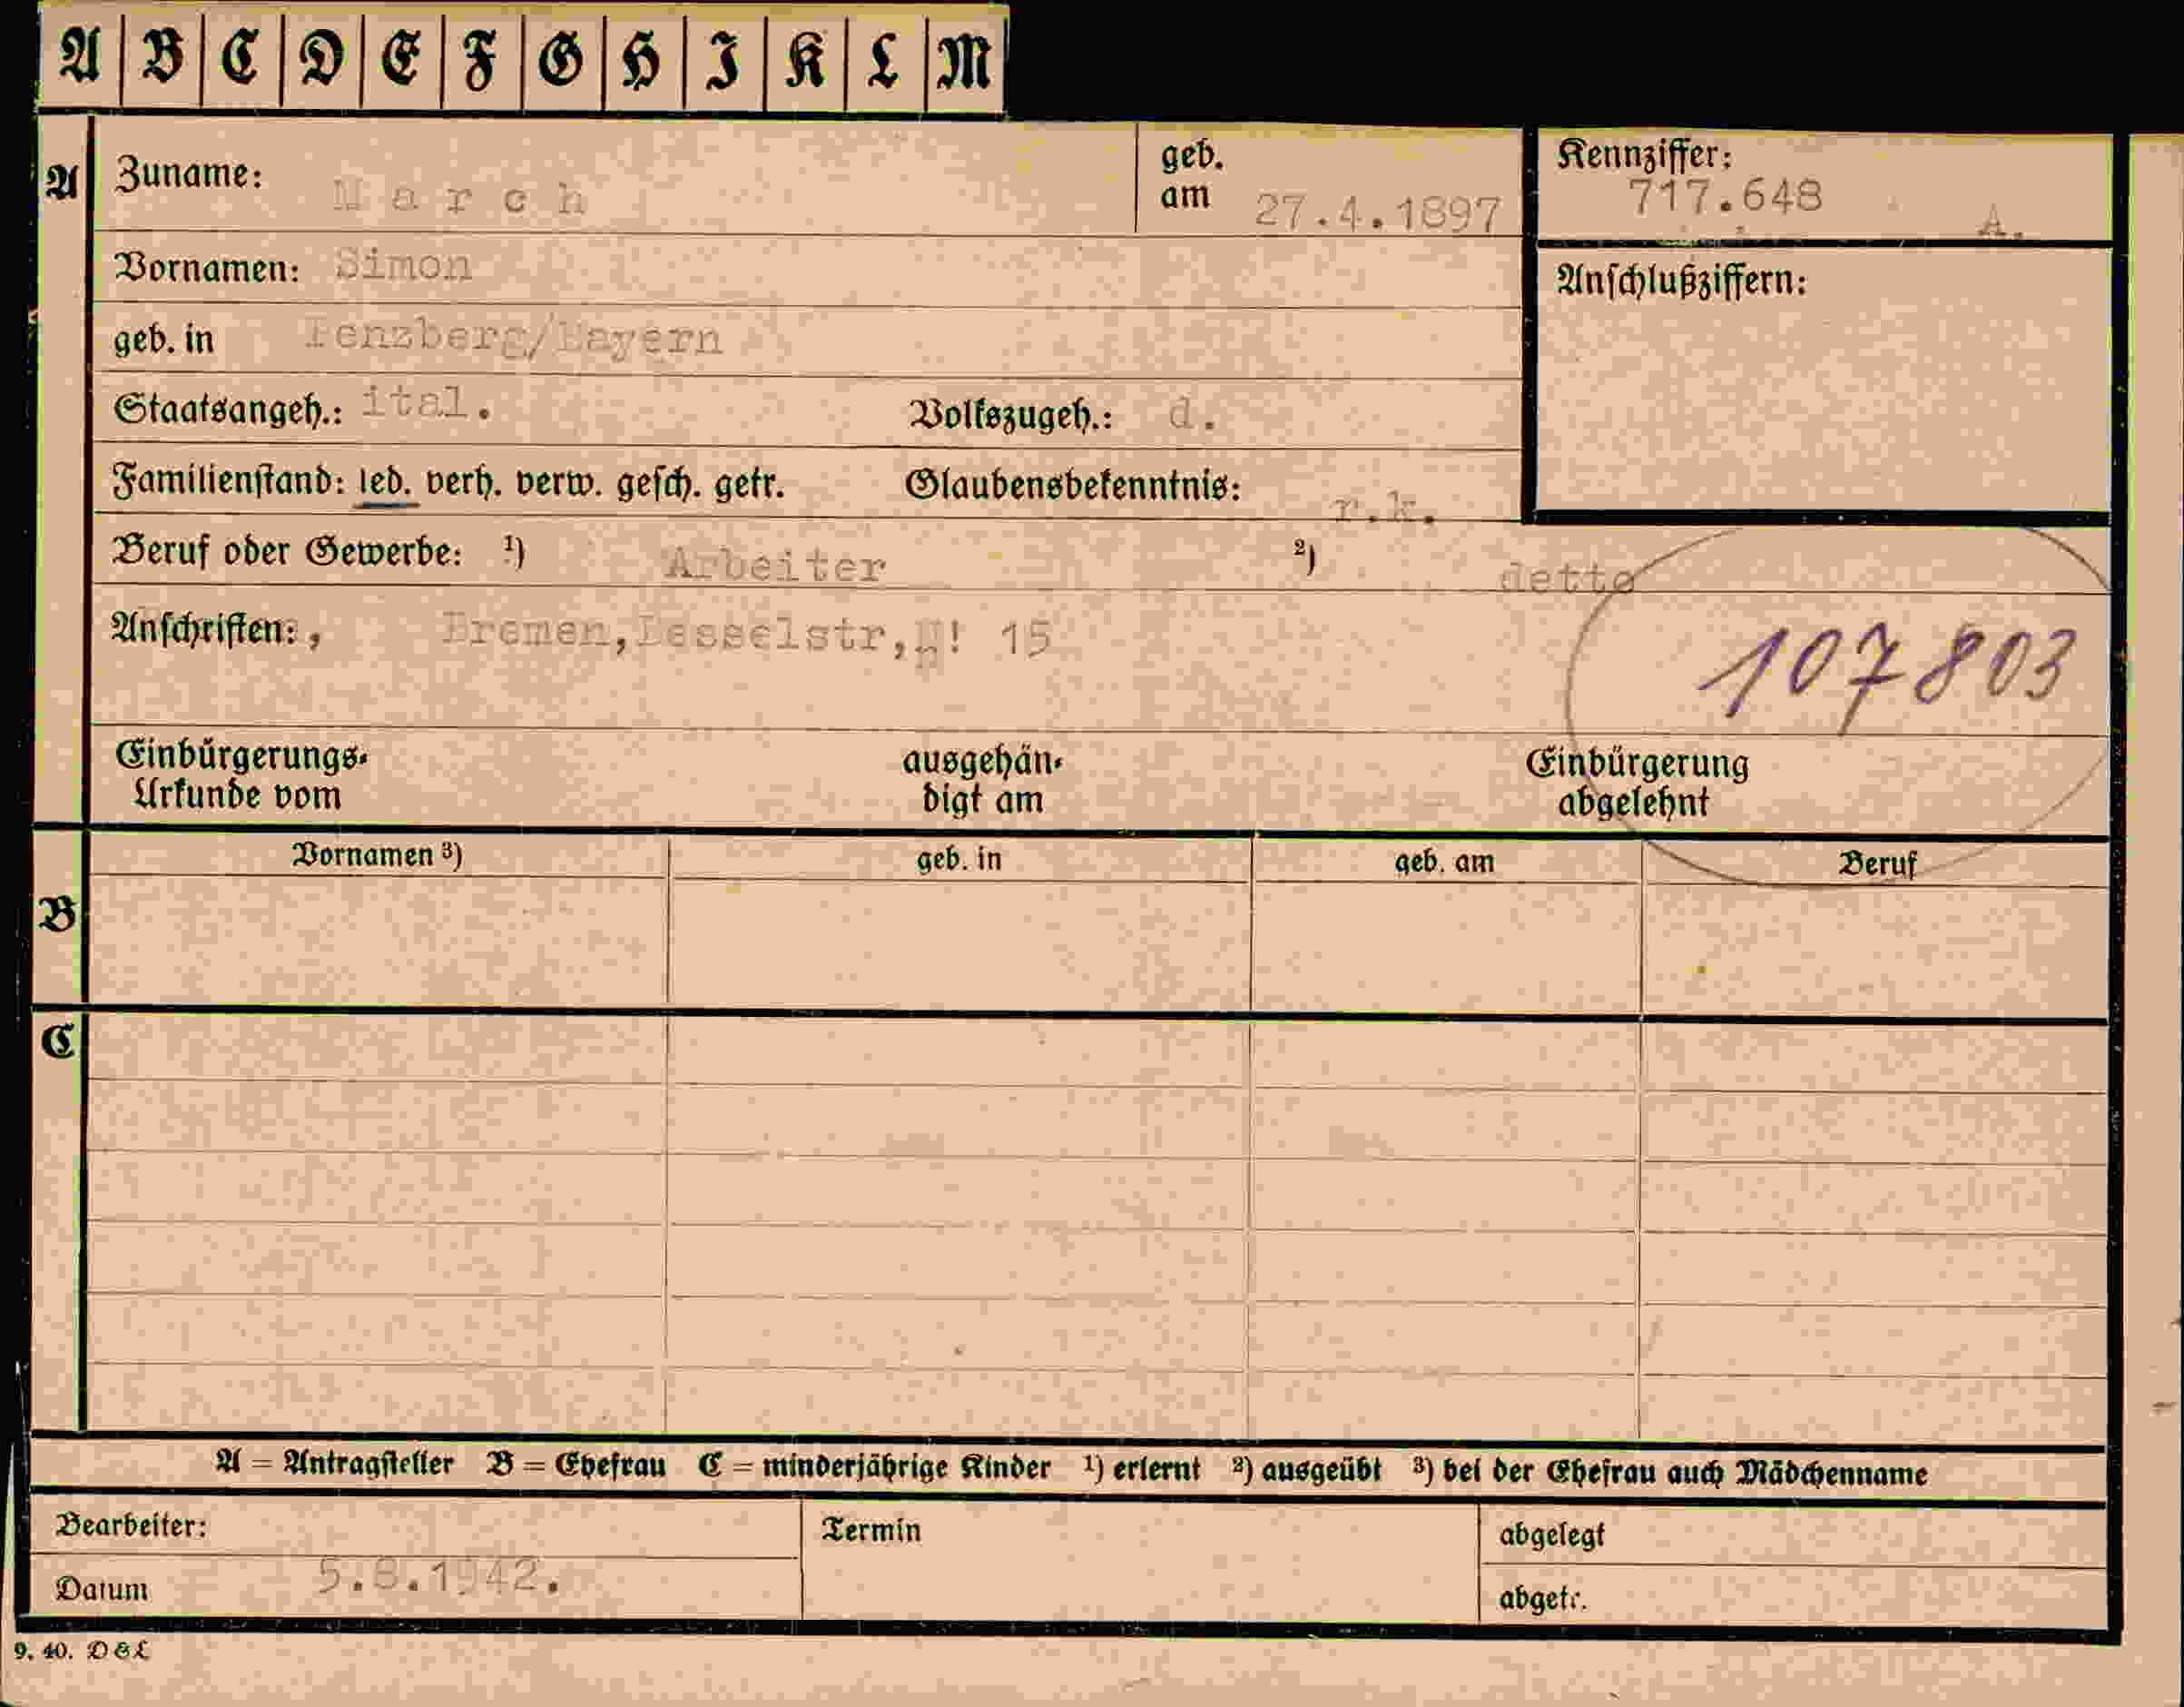 A B C D E F G H I K L M
A
Zuname: March
geb. am 27.4.1897
Kennziffer: 717.648 A.
Vornamen: Simon
Anschlußziffern:
geb. in Penzberg/Bayern
Staatsangeh.: ital. Volkszugeh.: d.
Familienstand: led. verh. verw. gesch. getr. Glaubensbekenntnis: r.k.
Beruf oder Gewerbe: ¹) Arbeiter ²) detto
Anschriften: , Bremen, 15
107803
Einbürgerungs-
Urkunde vom
ausgehän-
digt am
Einbürgerung
abgelehnt
B
Vornamen ³) geb. in geb. am Beruf
C
A = Antragsteller B = Ehefrau C = minderjährige Kinder ¹) erlernt ²) ausgeübt ³) bei der Ehefrau auch Mädchenname
Bearbeiter:
Datum 5.8.1942.
Termin
abgelegt
abgetr.
9. 40. D&L